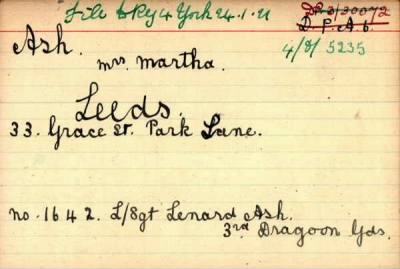 File to Rly 4 York 24.1.21
D.P.3/30072
D.P.A.6.
4/D/5235
Ash.
mrs martha.
Leeds.
33. Grace St. Park Lane.
no. 1642. L/Sgt Lenard Ash.
3rd Dragoon Gds.